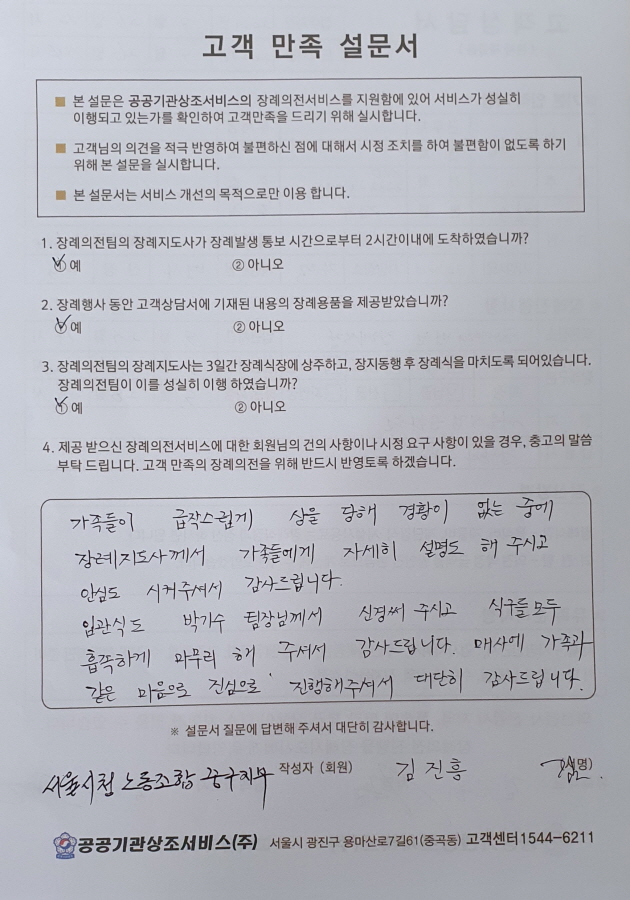 고객 만족 설문서
■ 본 설문은 공공기관상조서비스의 장례의전서비스를 지원함에 있어 서비스가 성실히
이행되고 있는가를 확인하여 고객만족을 드리기 위해 실시합니다.
■ 고객님의 의견을 적극 반영하여 불편하신 점에 대해서 시정 조치를 하여 불편함이 없도록 하기
위해 본 설문을 실시합니다.
■ 본 설문서는 서비스 개선의 목적으로만 이용 합니다.
1. 장례의전팀의 장례지도사가 장례발생 통보 시간으로부터 2시간이내에 도착하였습니까?
① 예 ② 아니오
2. 장례행사 동안 고객상담서에 기재된 내용의 장례용품을 제공받았습니까?
① 예 ② 아니오
3. 장례의전팀의 장례지도사는 3일간 장례식장에 상주하고, 장지동행 후 장례식을 마치도록 되어있습니다.
장례의전팀이 이를 성실히 이행 하였습니까?
① 예 ② 아니오
4. 제공 받으신 장례의전서비스에 대한 회원님의 건의 사항이나 시정 요구 사항이 있을 경우, 충고의 말씀
부탁 드립니다. 고객 만족의 장례의전을 위해 반드시 반영토록 하겠습니다.
가족들이 급작스럽게 상을 당해 경황이 없는 중에
장례지도사께서 가족들에게 자세히 설명도 해 주시고
안심도 시켜주셔서 감사드립니다.
입관식도 박기수 팀장님께서 신경써 주시고 식구들 모두
흡족하게 마무리 해 주셔서 감사드립니다. 매사에 가족과
같은 마음으로 진심으로 진행해주셔서 대단히 감사드립니다.
※ 설문서 질문에 답변해 주셔서 대단히 감사합니다.
서울시청 노동조합 중구지부 작성자 (회원) 김진흥 명)
공공기관상조서비스(주) 서울시 광진구 용마산로7길61(중곡동) 고객센터1544-6211